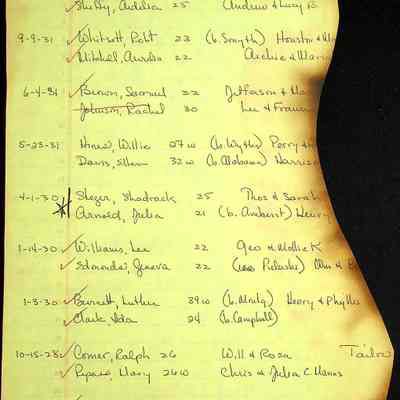 Shuffy, Ardelia 25 Andrew & Lucy B
9-9-31 Whitsett, Robt 23 (b. Smyth) Houston & Ma
Mitchel, Aurelia 22 Archie & Maria
6-4-31 Brown, Samuel 22 Jefferson & Ma
Johnson, Rachel 20 Lee & Frances
5-23-31 Hines, Willie 27 w (b. Wythe) Perry &
Davis, Ellen 32 w (b. Alabama) Harrison
4-1-30 Steger, Shadrack 25 Thos & Sarah
* Arnold, Julia 21 (b. Amherst) Henry
1-14-30 Williams, Lee 22 Geo & Mollie K
Edmonds, Geneva 22 Pulaski)
1-3-30 Burnett, Luther 39 w (b. Montg) Henry & Phyllis
Clark, Ida 24 (b. Campbell)
10-15-28 Comer, Ralph 26 Will & Rosa Tailor
Mary 26 w Chris & Julia C.